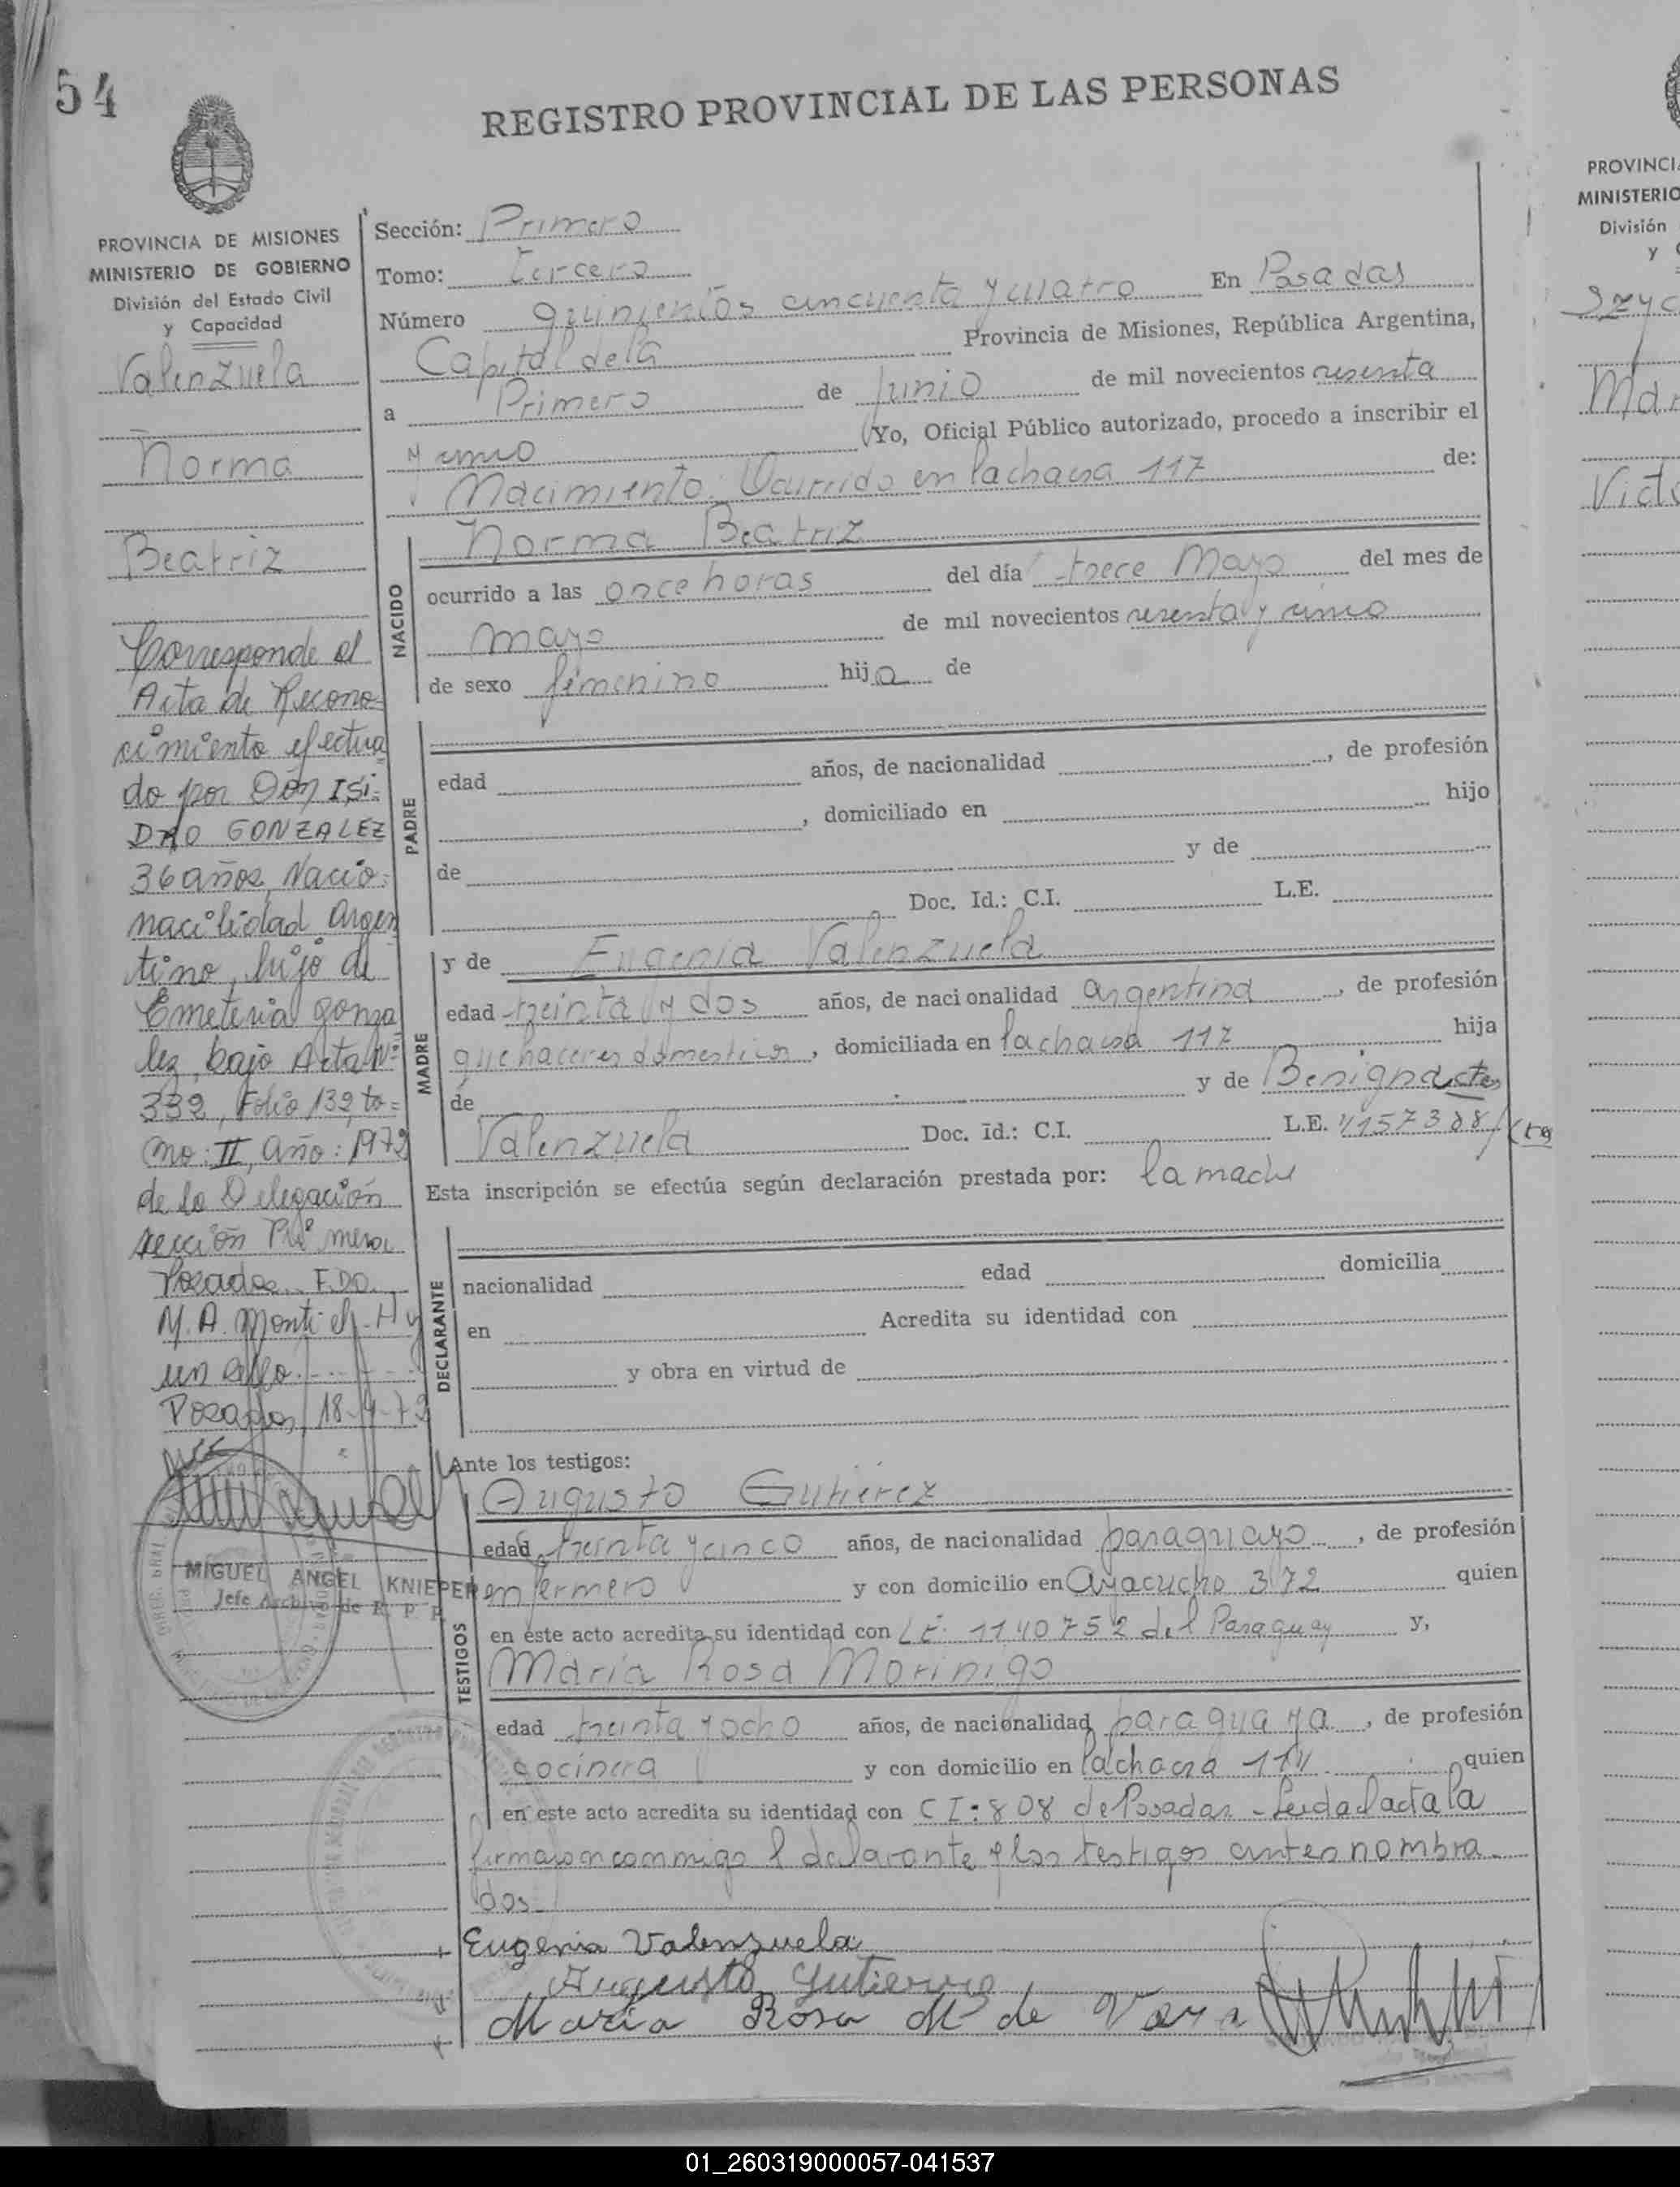 54
REGISTRO PROVINCIAL DE LAS PERSONAS
PROVINCIA DE MISIONES
MINISTERIO DE GOBIERNO
División del Estado Civil
y Capacidad
Valenzuela
Norma
Beatriz
Corresponde al
Acta de Recono-
cimiento efectua
do por Don ISI-
DRO GONZALEZ
36 años, Nacio-
nacilidad Argen
tino, hijo de
Emeteria Gonza
lez, bajo Acta Nº
339, Folio 139, to=
mo: II, Año: 1979
de la Delegación
sección Primera
Posadas. F.DO.
M. A. Montiel. Hy
un sello.
Posadas, 18-9-79
MIGUEL ANGEL KNIEPER
Jefe Archivo de R. P. P.
Sección: Primero
Tomo: Tercero
Número quinientos cincuenta y cuatro En Posadas
Capital de la Provincia de Misiones, República Argentina,
a Primero de Junio de mil novecientos sesenta
y cinco Yo, Oficial Público autorizado, procedo a inscribir el
Nacimiento: Ocurrido en la chacra 117 de:
NACIDO
Norma Beatriz
ocurrido a las once horas del día trece Mayo del mes de
mayo de mil novecientos sesenta y cinco
de sexo femenino hija de
PADRE
edad años, de nacionalidad , de profesión
, domiciliado en hijo
de y de
Doc. Id.: C.I. L.E.
MADRE
y de Eugenia Valenzuela
edad treinta y dos años, de nacionalidad argentina , de profesión
quehaceres domesticos , domiciliada en la chacra 117 hija
de y de Benigna
Valenzuela Doc. Id.: C.I. L.E.
Esta inscripción se efectúa según declaración prestada por: la madre
DECLARANTE
nacionalidad edad domicilia
en Acredita su identidad con
y obra en virtud de
Ante los testigos:
TESTIGOS
Augusto Gutierez
edad treinta y cinco años, de nacionalidad paraguayo , de profesión
enfermero y con domicilio en Ayacucho 372 quien
en este acto acredita su identidad con L.E. 1140752 del Paraguay y,
Maria Rosa Morinigo
edad treinta y ocho años, de nacionalidad paraguaya , de profesión
cocinera y con domicilio en la chacra quien
en este acto acredita su identidad con CI: 808 de Posadas - Leida el acta la
firmaron conmigo el declarante y los testigos antes nombra
dos
Eugenia Valenzuela
Augusto Gutierrez
Maria Rosa M de Vera
PROVINCI
MINISTERIO
División
y
Mar
Victo
01_260319000057-041537